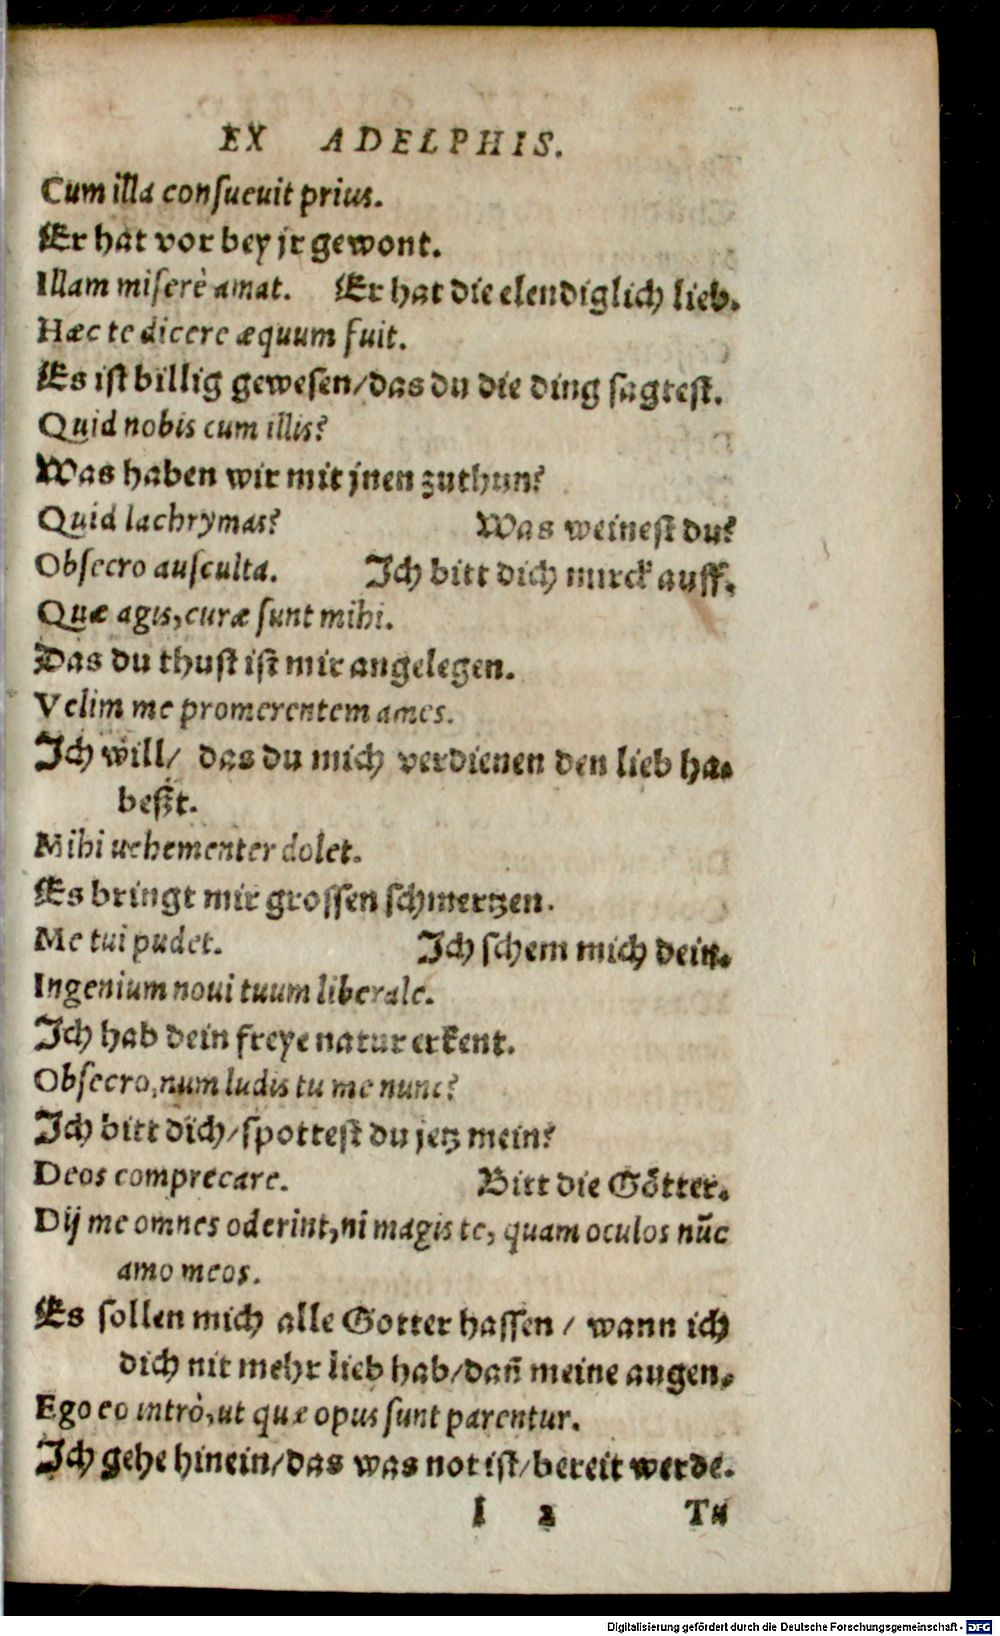 EX ADELPHIS.
Cum illa conſueuit prius.
Er hat vor bey jr gewont.
Illam miſerè amat. Er hat die elendiglich lieb.
Hæc te dicere æquum fuit.
Es iſt billig geweſen/das du die ding ſagteſt.
Quid nobis cum illis?
Was haben wir mit jnen zuthun?
Quid lachrymas? Was weineſt du?
Obſecro auſculta. Ich bitt dich mirck auff.
Quæ agis, curæ ſunt mihi.
Das du thuſt iſt mir angelegen.
Velim me promerentem ames.
Ich will/ das du mich verdienen den lieb ha-
beßt.
Mihi uehementer dolet.
Es bringt mir groſſen ſchmertzen.
Me tui pudet. Ich ſchem mich dein.
Ingenium noui tuum liberale.
Ich hab dein freye natur erkent.
Obſecro, num ludis tu me nunc?
Ich bitt dich/ſpotteſt du jetz mein?
Deos comprecare. Bitt die Götter.
Dij me omnes oderint, ni magis te, quam oculos nūc
amo meos.
Es ſollen mich alle Gotter haſſen / wann ich
dich nit mehr lieb hab/dañ meine augen.
Ego eo intrò, ut quæ opus ſunt parentur.
Ich gehe hinein/das was not iſt/bereit werde.
I 2 Tu
Digitalisierung gefördert durch die Deutsche Forschungsgemeinschaft - DFG